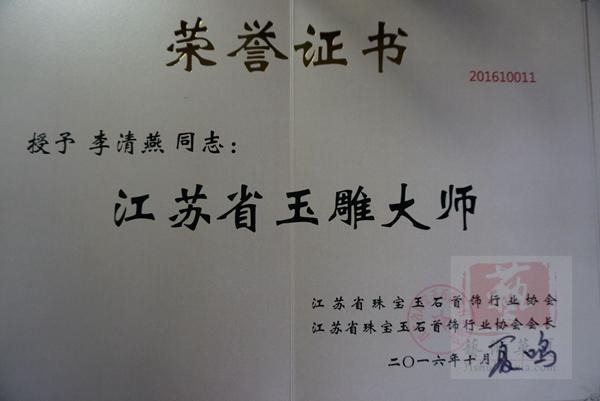 荣誉证书
201610011
授予 李清燕 同志：
江苏省玉雕大师
江苏省珠宝玉石首饰行业协会
江苏省珠宝玉石首饰行业协会会长
二〇一六年十月
夏鸣